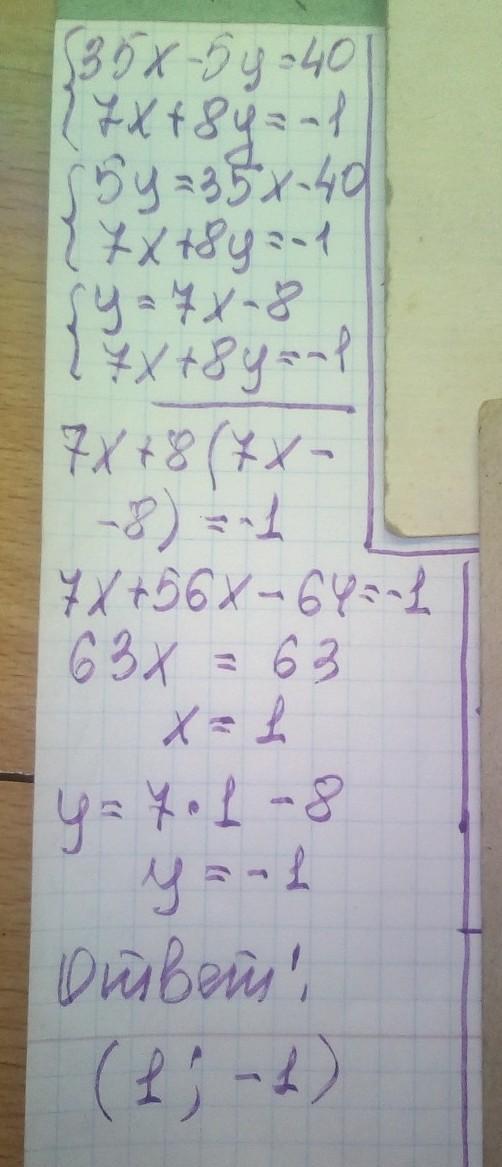 35x-5y=40
7x+8y=-1
5y=35x-40
7x+8y=-1
y=7x-8
7x+8y=-1
7x+8(7x-
-8)=-1
7x+56x-64=-1
63x = 63
x=1
y=7·1-8
y=-1
Ответ:
(1; -1)